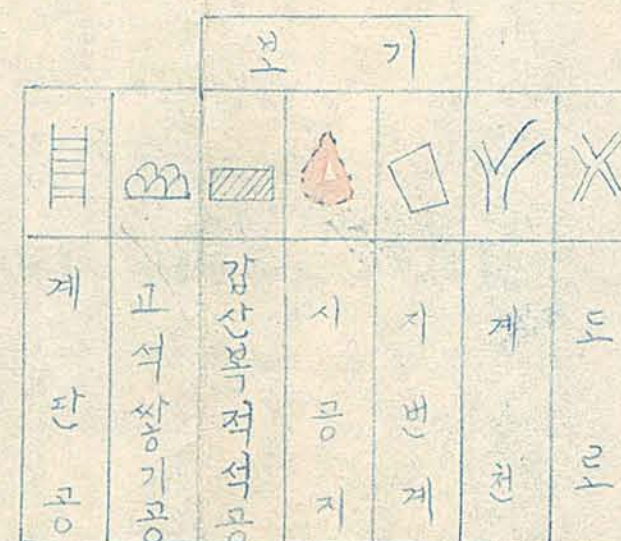 보 기
계단공
고석쌓기공
갑산복적석공
시공지
지번계
계천
도로